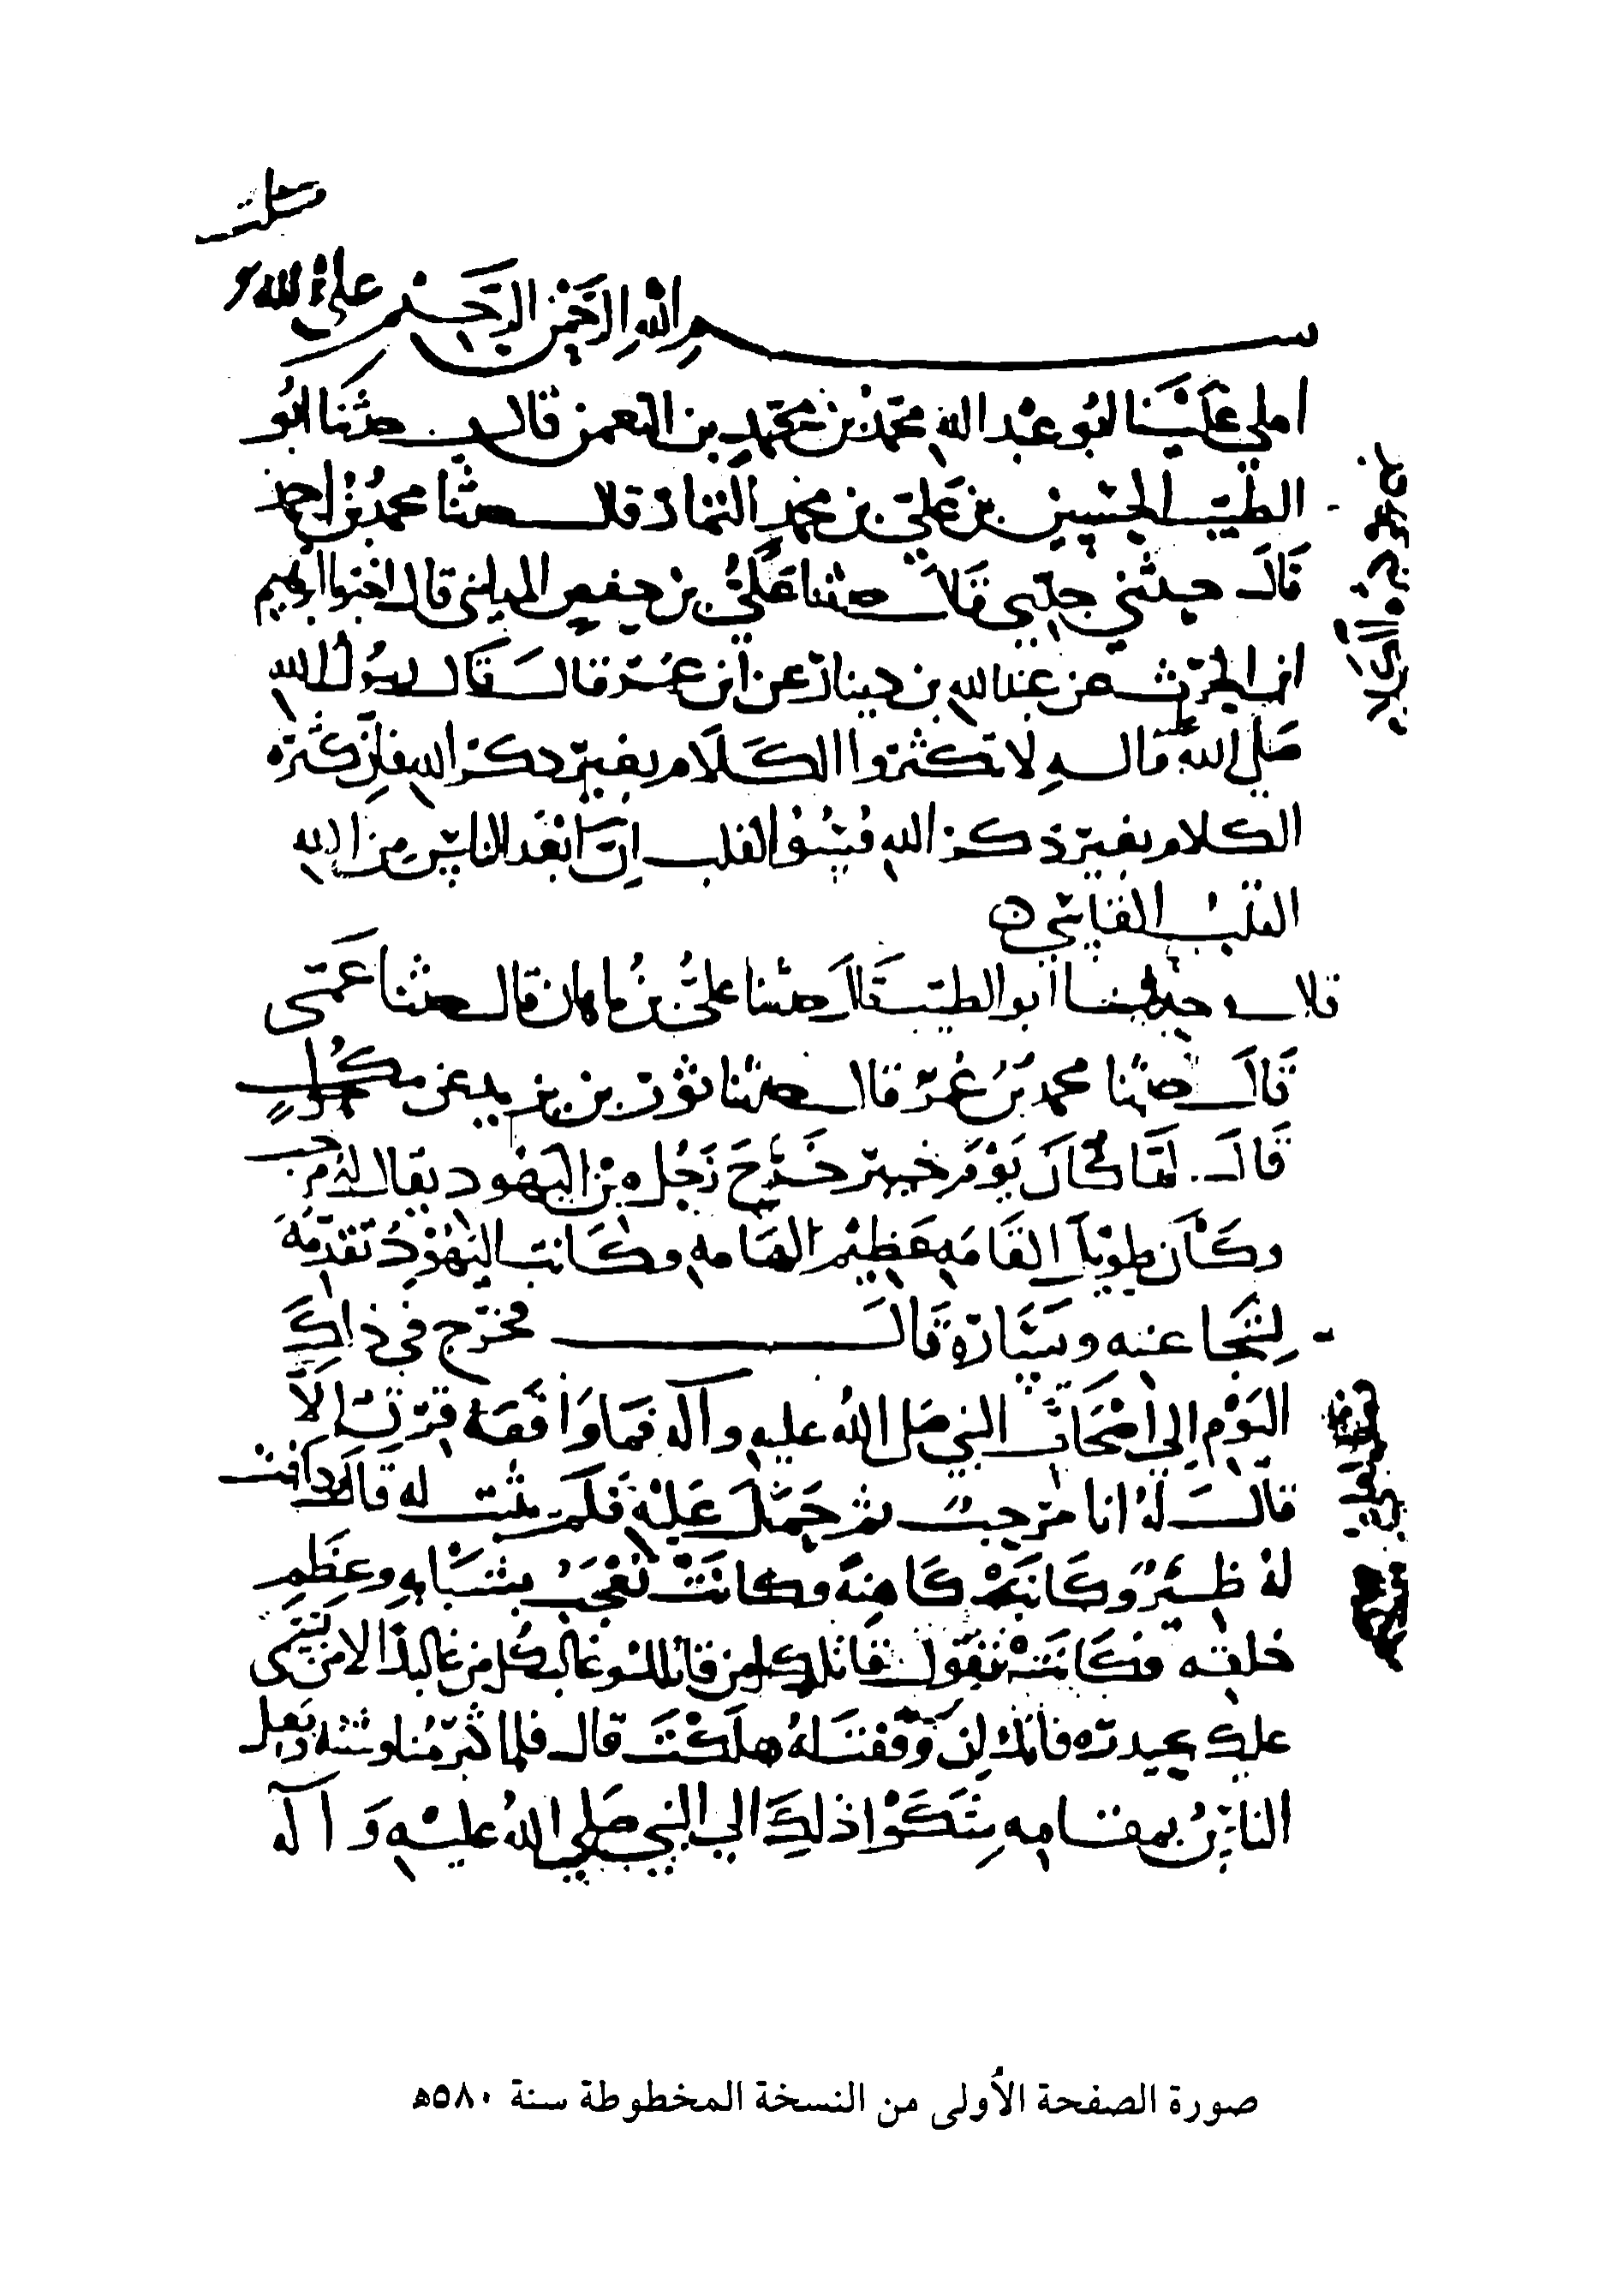 بسم الله الرحمن الرحيم
املى علينا ابو عبد الله محمد بن محمد بن النعمن قال حدثنا ابو
الطيب الحسين بن علي بن محمد التمار قال حدثنا محمد بن احمد
قال حدثني جدي قال حدثنا علي بن حفص المدايني قال اخبرنا ابرهيم
ابن الحرث عن عبد الله بن دينار عن ابن عمر قال قال رسول الله
صلى الله واله لا تكثروا الكلام بغير ذكر الله فان كثرة
الكلام بغير ذكر الله قسو القلب ان ابعد الناس من الله
القلب القاسي
قال وحدثنا ابو الطيب قال حدثنا علي بن ماهان قال حدثنا عمي
قال حدثنا محمد بن عمر قال حدثنا ثور بن يزيد عن مكحول
قال لما كان يوم خيبر خرج رجل من اليهود يقال له مرحب
وكان طويل القامه عظيم الهامه وكانت اليهود تقدمه
لشجاعته ويساره قال فخرج في ذلك
اليوم الى اصحاب النبي صلى الله عليه وآله فما واقفه قرن الا
قال له انا مرحب ثم حمل عليه فلم يثبت له قال وكانت
له ظئر وكانت كاهنة وكانت تعجب بشبابه وعظم
خلقه وكانت تقول قاتل كل من قاتلك وغالب كل من غالبك الا من تسمى
عليك بحيدرة فانك ان وقفت له هلكت قال فلما كثر مناوشته
الناس بمقامه شكوا ذلك الى النبي صلى الله عليه وآله
صورة الصفحة الأولى من النسخة المخطوطة سنة ٥٨٠ه